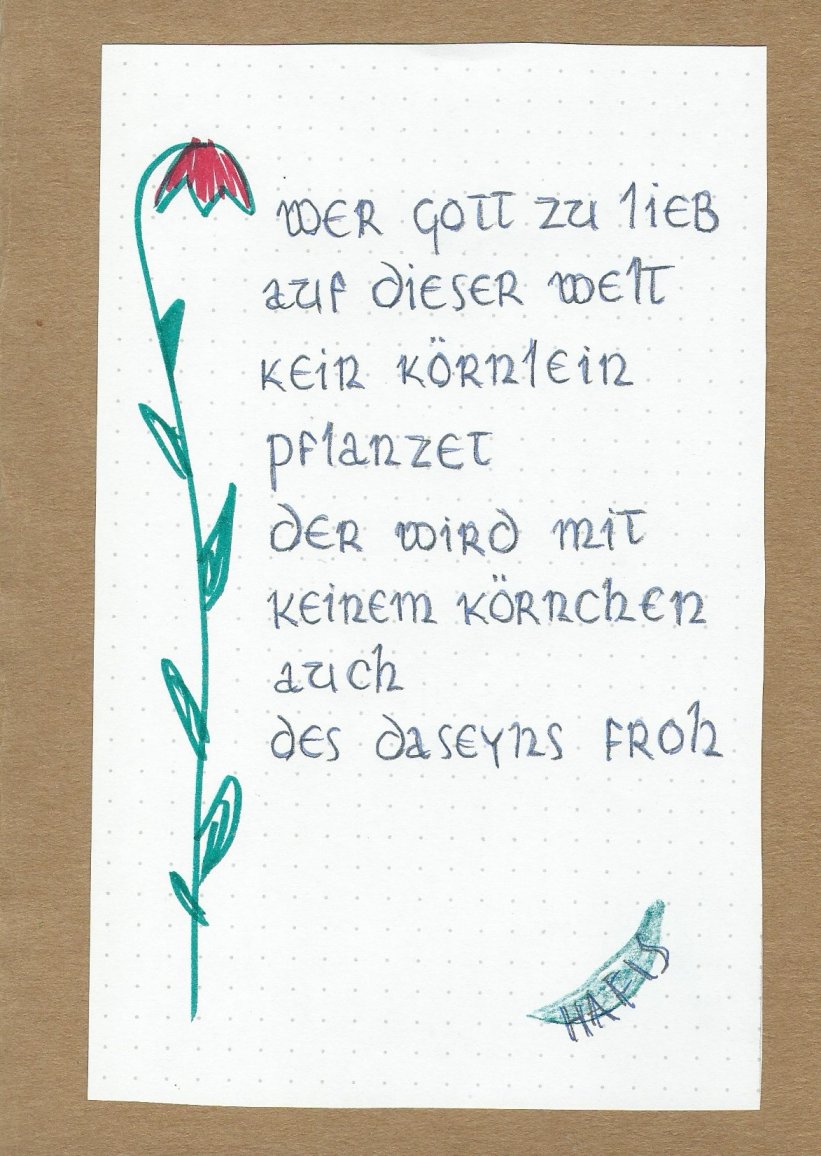 wer Gott zu lieb
auf dieser Welt
kein Körnlein
pflanzet
der wird mit
keinem Körnchen
auch
des Daseyns froh
HAFIS